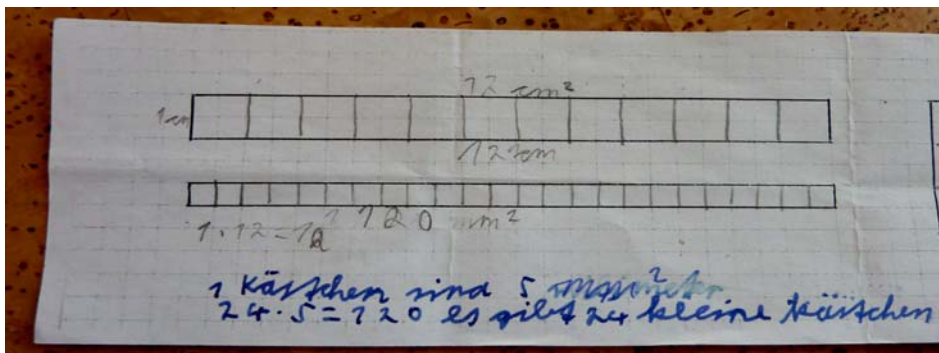 12 cm²
1 cm
12 cm
1 · 12 = 12
120 mm²
1 Kästchen sind 5
24 · 5 = 120 es gibt 24 kleine Kästchen